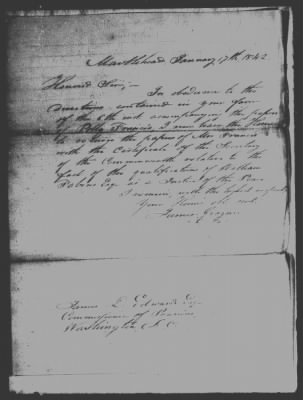 Marblehead January 17th 1842
Honored Sir,
In obedience to the
directions contained in your favor
of the 6th inst. accompanying the papers
of I now have the
to return the papers of Mrs
with the Certificate of the Secretary
of the Commonwealth relative to the
fact of the qualification of
Esq as a Justice of the Peace
I remain, with the highest respect
Your Honor's obt
James
James L. Edwards Esq
Commissioner of Pensions
Washington D.C.